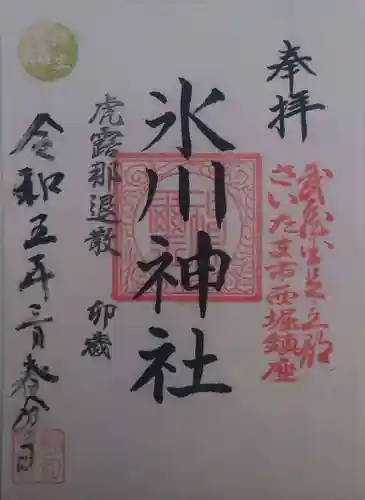 奉拝
武蔵国足立郡
さいたま市西堀鎮座
氷川神社
虎露那退散
卯歳
令和五年三月春分の日